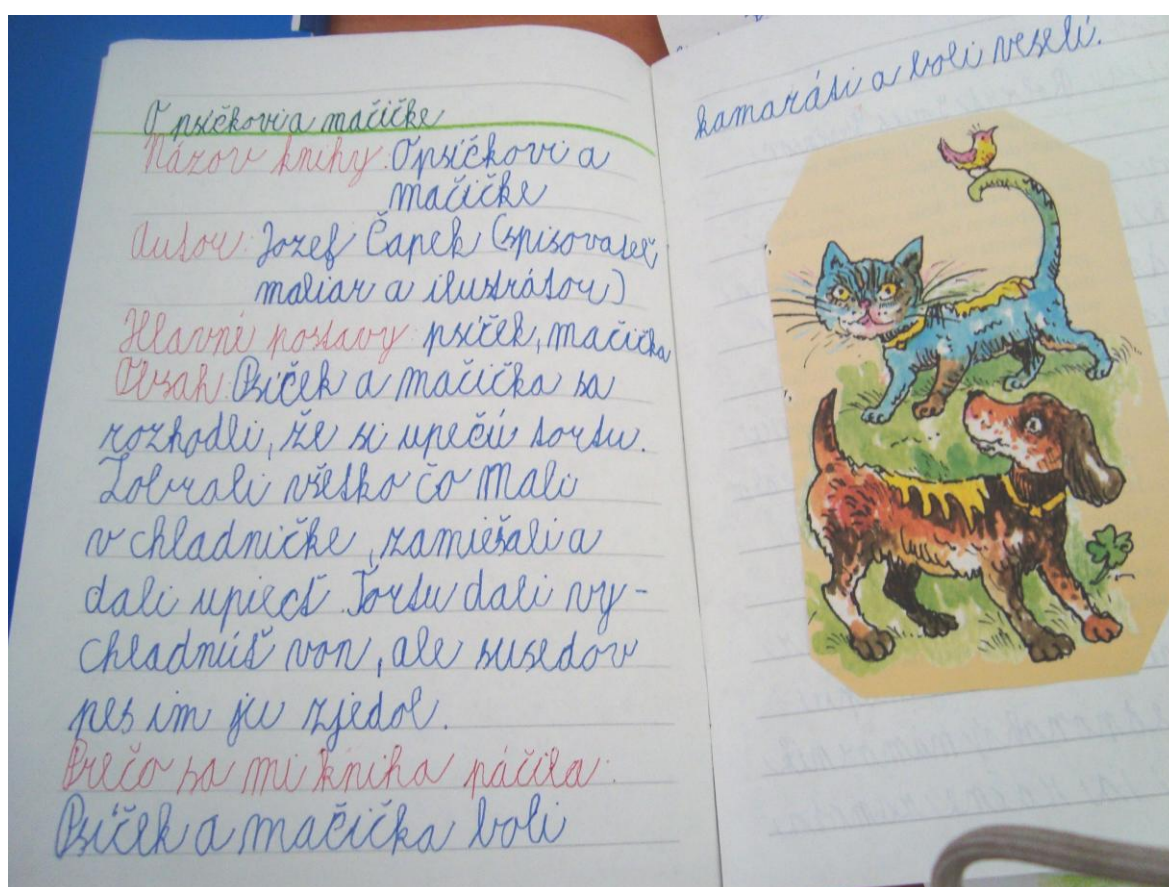 O psíčkovi a mačičke
Názov knihy: O psíčkovi a
mačičke
Autor: Jozef Čapek (spisovateľ,
maliar a ilustrátor)
Hlavné postavy: psíček, mačička
Obsah: Psíček a mačička sa
rozhodli, že si upečú tortu.
Zobrali všetko čo mali
v chladničke, zamiešali a
dali upiecť. Tortu dali vy-
chladnúť von, ale susedov
pes im ju zjedol.
Prečo sa mi kniha páčila:
Psíček a mačička boli
kamaráti a boli veselí.